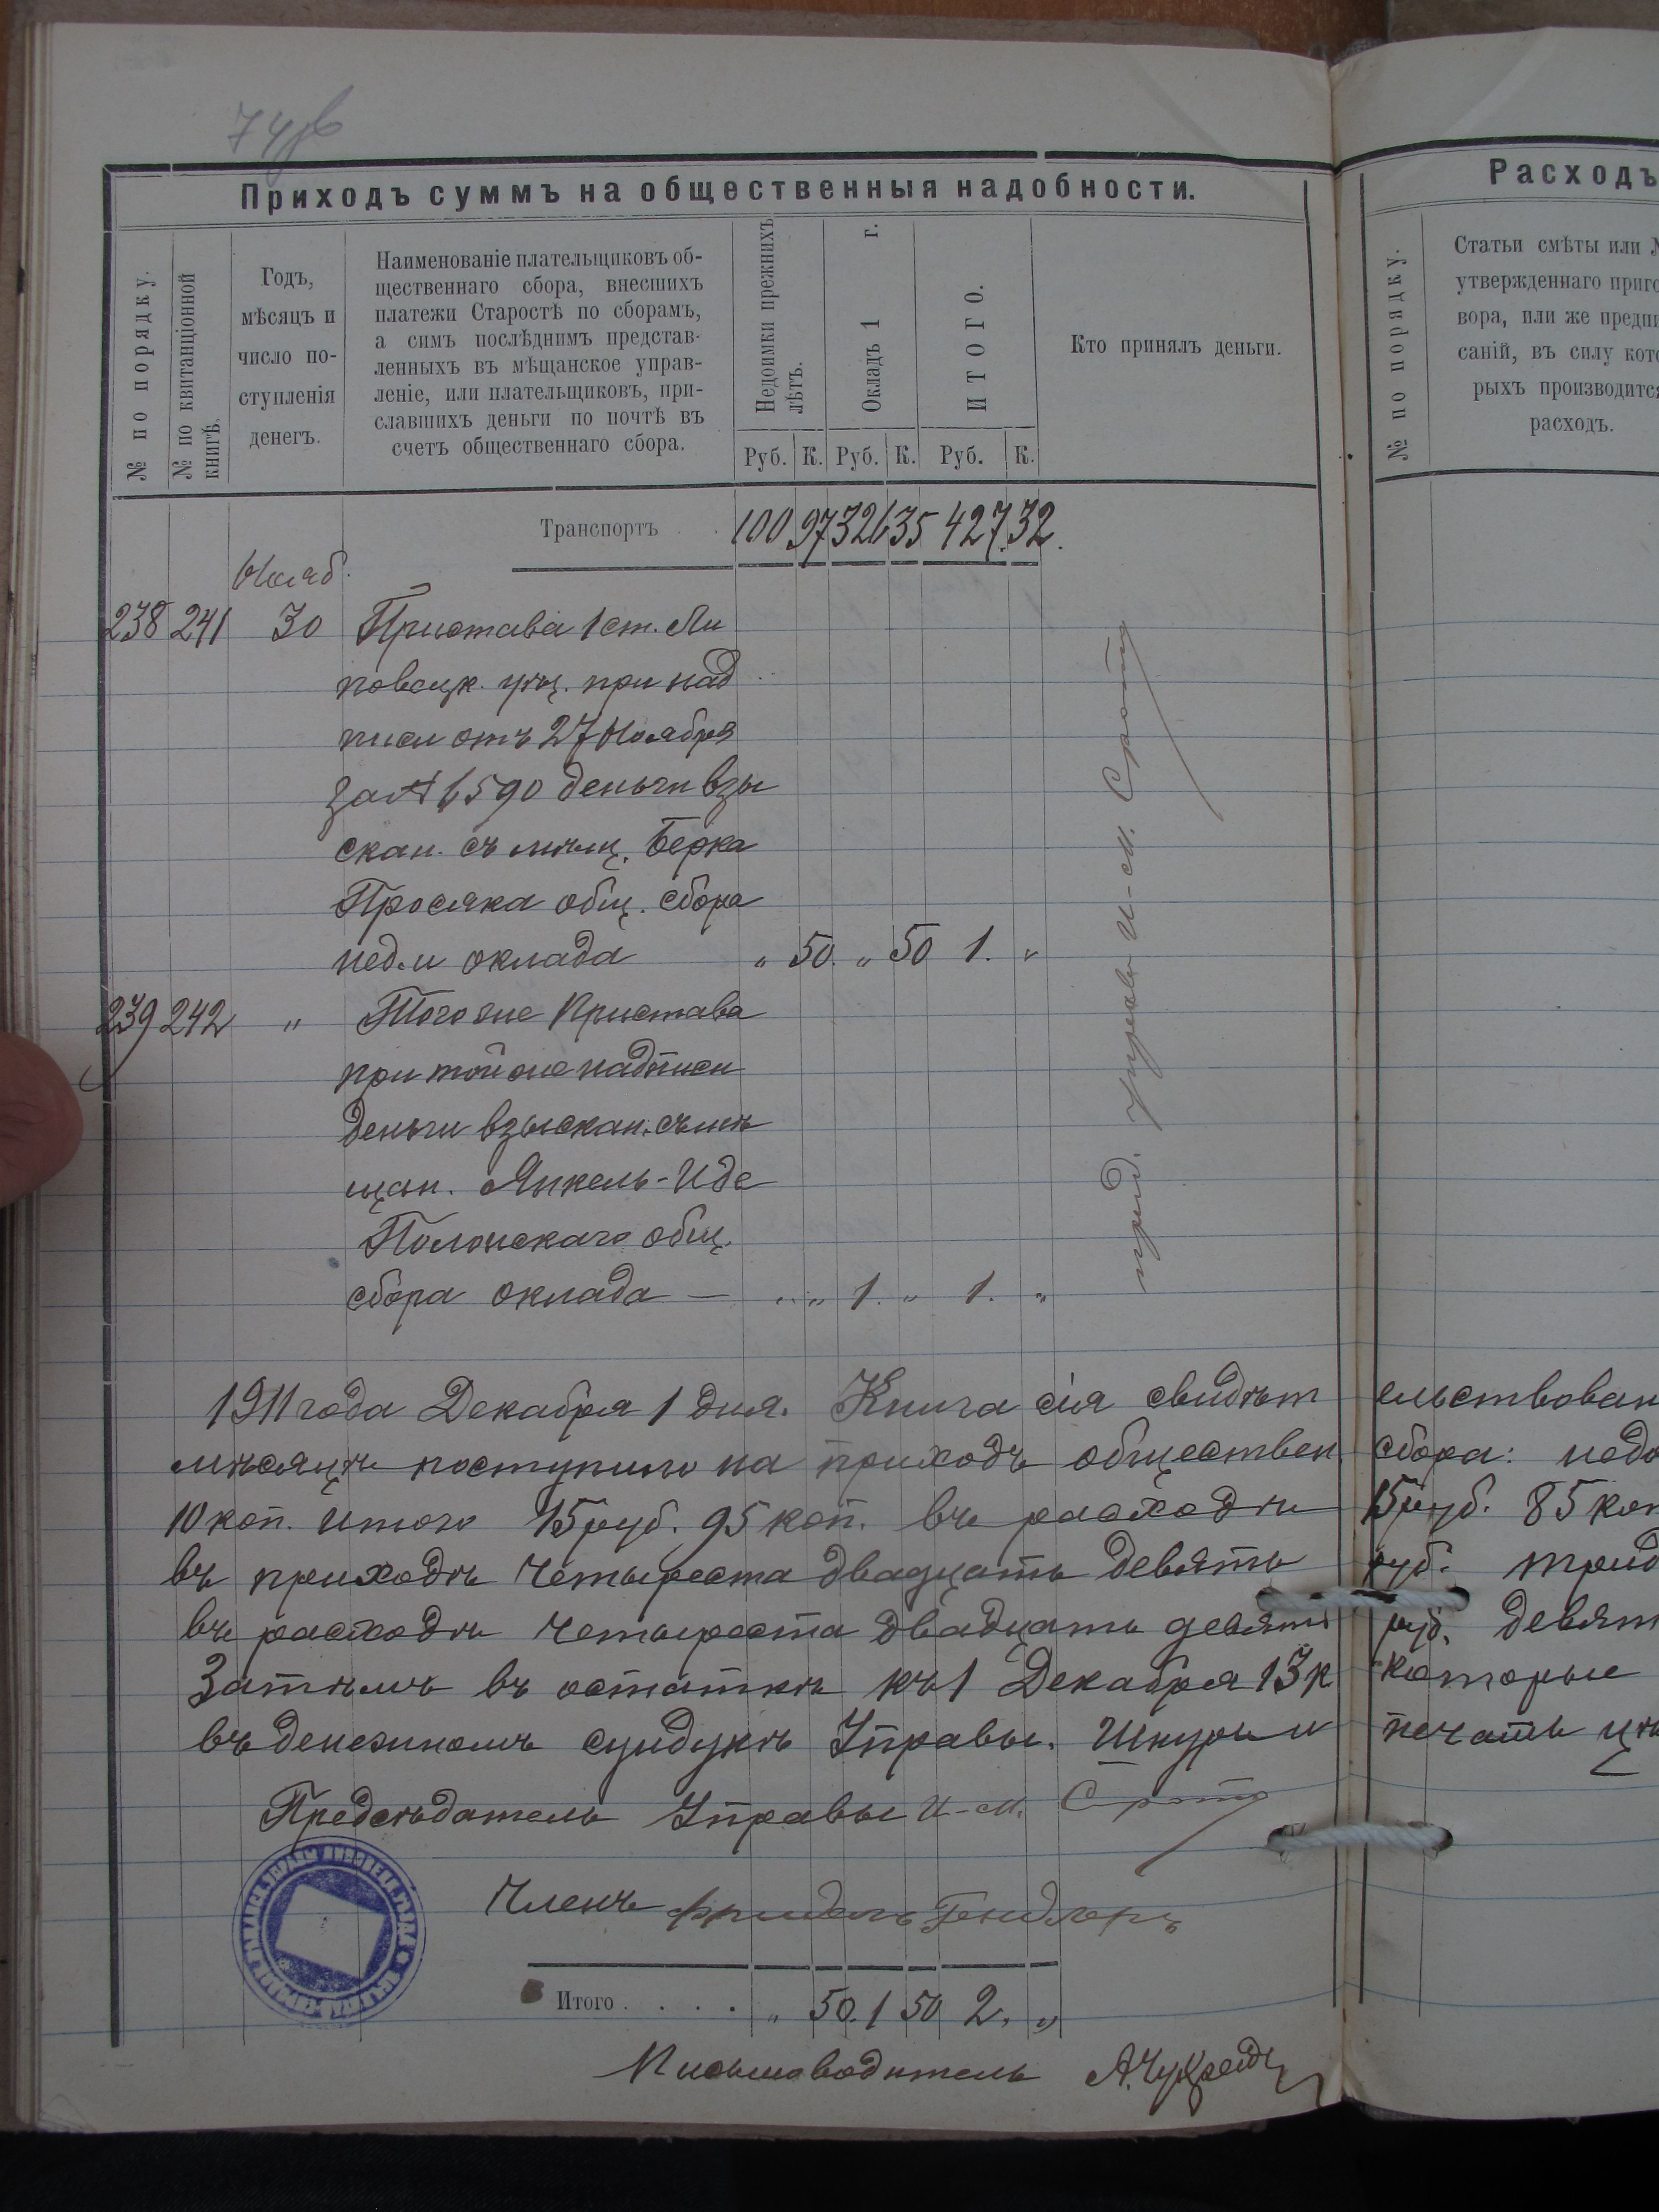 74об
Приходъ суммъ на общественныя надобности.
№ по порядку.
№ по квитанціонной
книгѣ.
Годъ,
мѣсяцъ и
число по-
ступленія
денегъ.
Наименованіе плательщиковъ об-
щественнаго сбора, внесшихъ
платежи Старостѣ по сборамъ,
а симъ послѣднимъ представ-
ленныхъ въ мѣщанское управ-
леніе, или плательщиковъ, при-
славшихъ деньги по почтѣ въ
счетъ общественнаго сбора.
Недоимки прежнихъ
лѣтъ.
Окладъ 1 г.
ИТОГО.
Руб. К. Руб. К. Руб. К.
Кто принялъ деньги.
Транспортъ . . 100 97 326 35 427 32.
Нояб.
238 241 30 Пристава 1 ст. Ли
повецк. уѣз. при над
писи отъ 27 Ноября
за № 6590 деньги взы
скан. съ мѣщ. Берка
Просяка общ. сбора
нед. и оклада „ 50. „ 50 1. „
239 242 „ Того же Пристава
при той же надписи
деньги взыскан. съ мѣ
щан. Янкель-Иде
Полонскаго общ.
сбора оклада — „ „ 1. „ 1. „
пред. управы И-М.
1911 года Декабря 1 дня. Книга сія свидѣт
мѣсяцѣ поступило на приходъ обществен.
10 коп. итого 15 руб. 95 коп. въ расходѣ
въ приходѣ Четыреста двадцать девять
въ расходѣ Четыреста двадцать девять
Затѣмъ въ остаткѣ къ 1 Декабря 13 к
въ денежномъ сундукѣ Управы. Шнуръ и
Предсѣдатель Управы И-М.
Членъ Гендлеръ
Итого . . . . „ 50. 1 50 2. „
Письмоводитель
Расходъ
№ по порядку.
Статьи смѣты или №
утвержденнаго приго
вора, или же предпи
саній, въ силу кото
рыхъ производится
расходъ.
ельствован
сбора: недо
15 руб. 85 коп
руб. трид
руб. девят
которые
печать цѣ